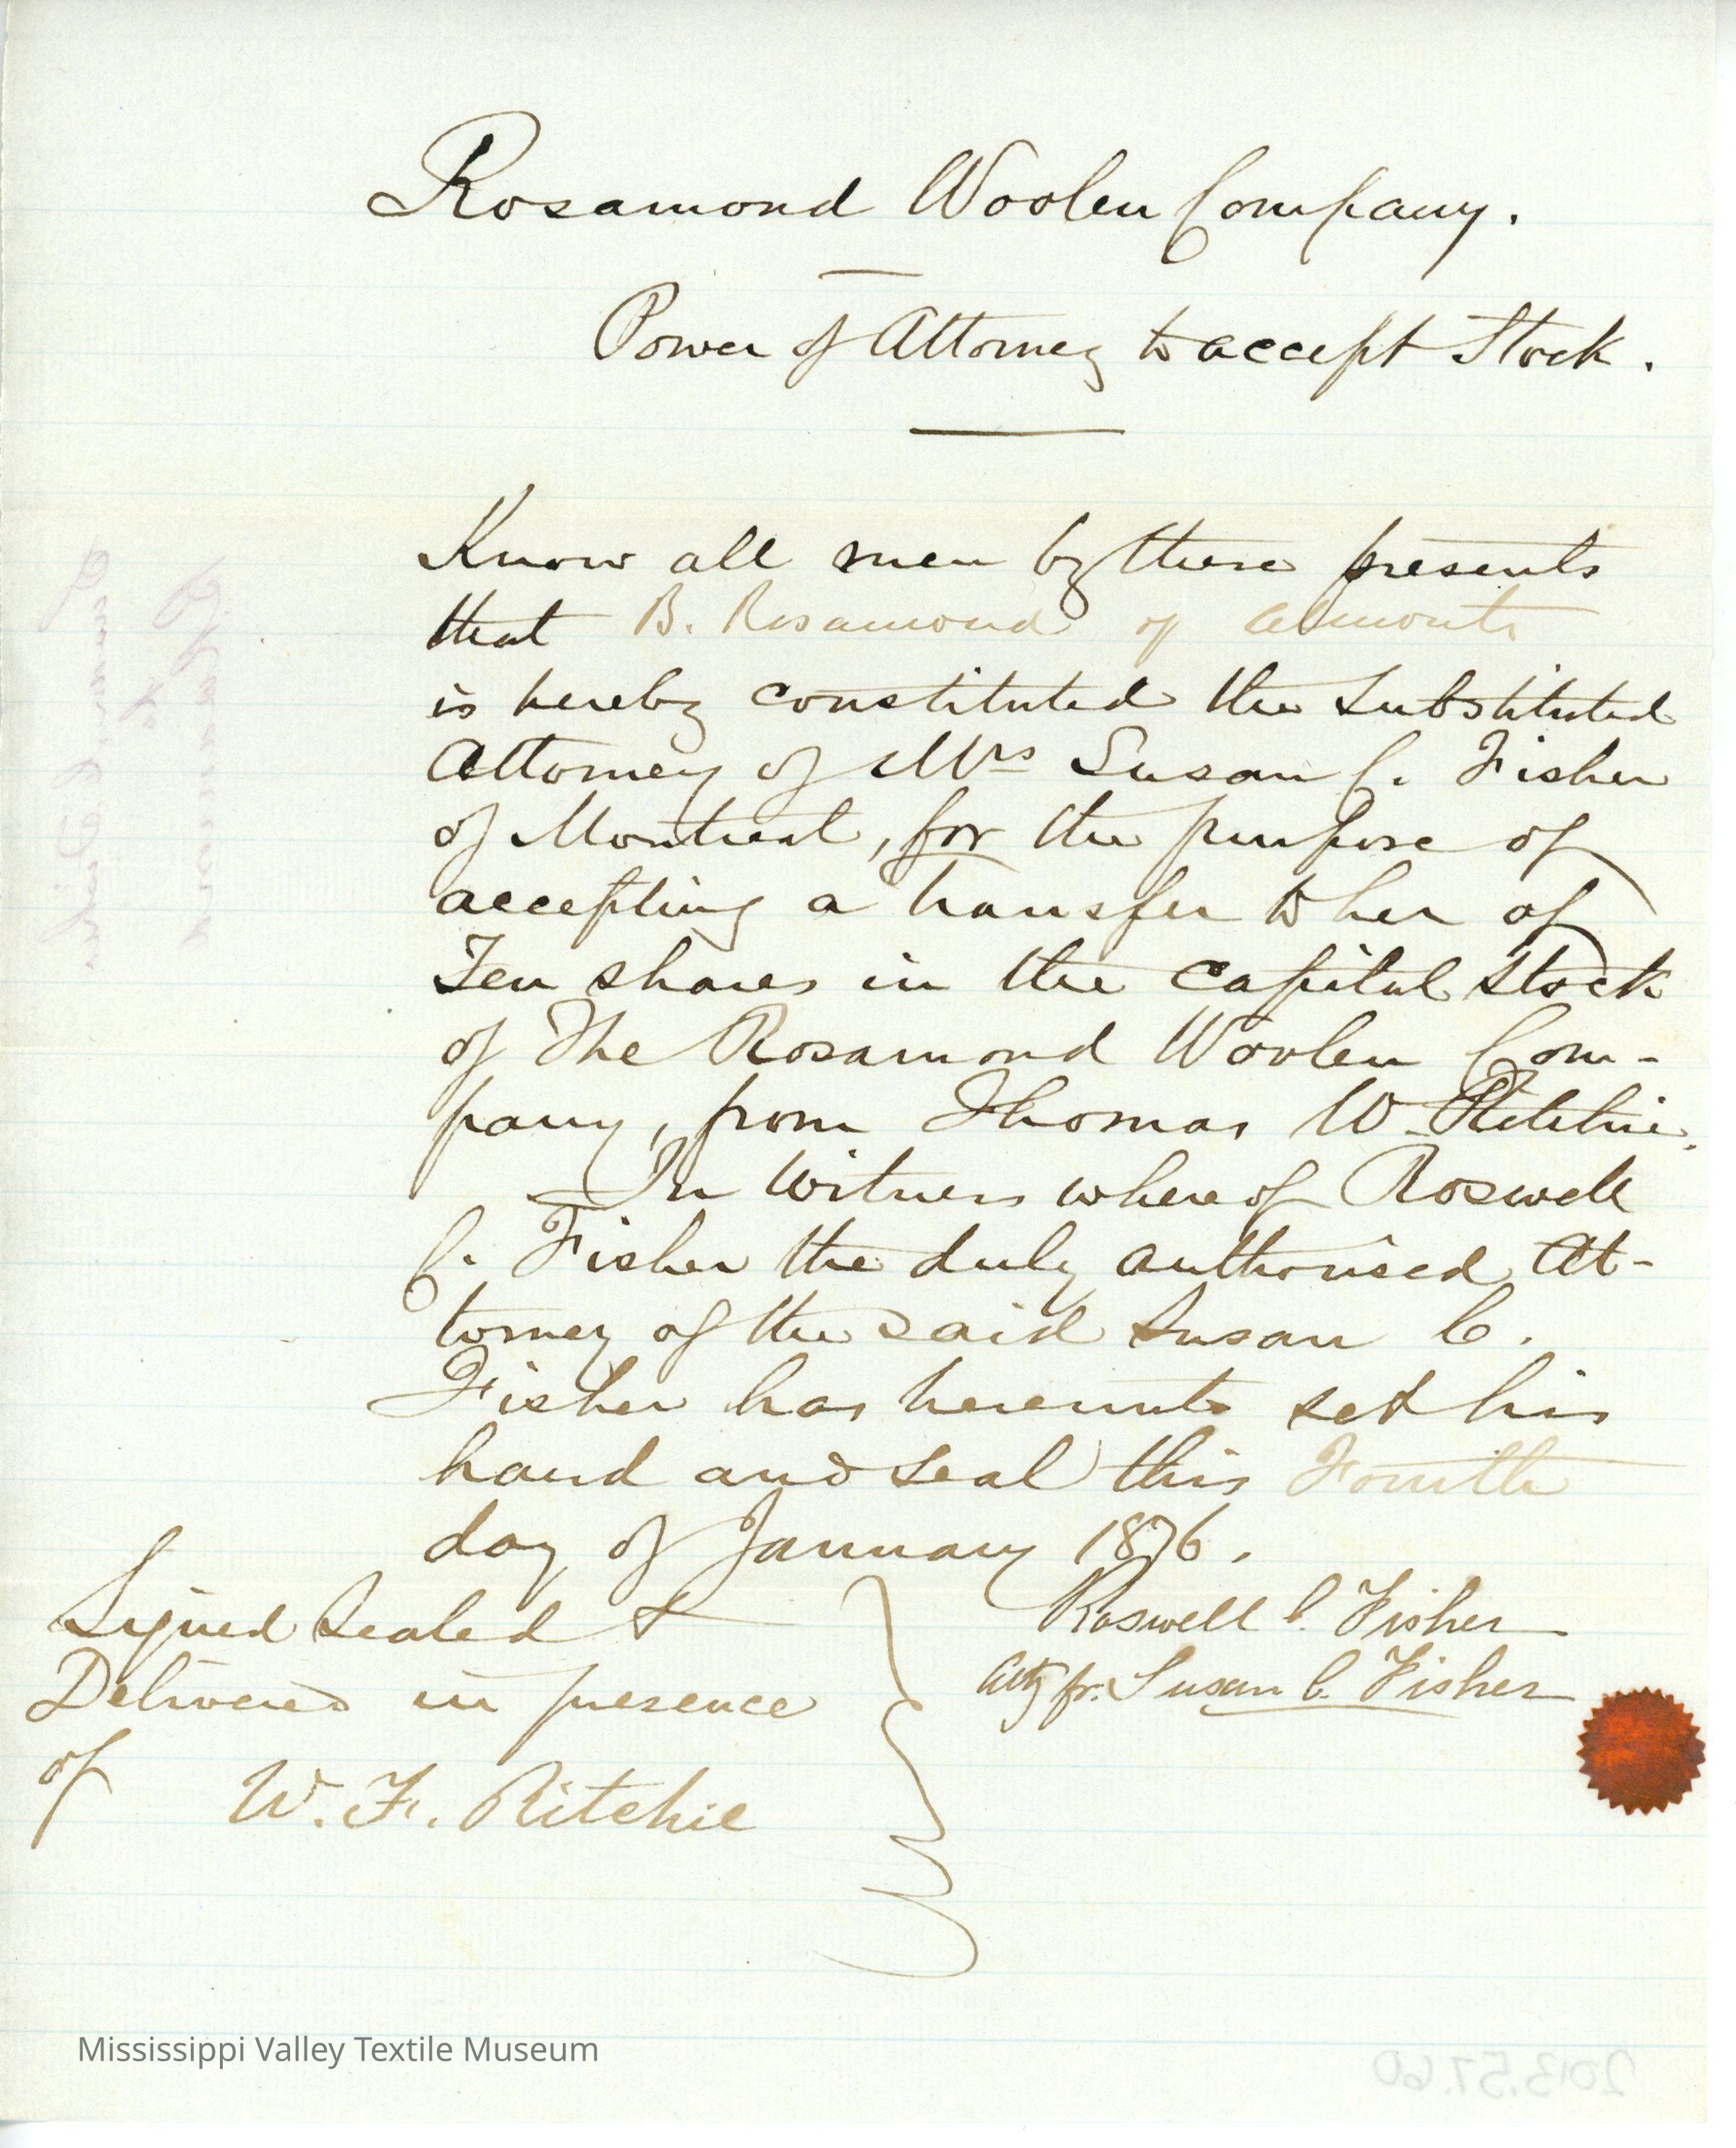 Rosamond Woolen Company.
Power of Attorney to accept Stock.
Know all men by these presents
that B. Rosamond of Almonte
is hereby constituted the Substituted
Attorney of Mrs Susan C. Fisher
of Montreal, for the purpose of
accepting a transfer to her of
Ten shares in the Capital Stock
of The Rosamond Woolen Com-
pany, from Thomas W. Ritchie.
In Witness whereof Roswell
C. Fisher the duly authorised At-
torney of the said Susan C.
Fisher has hereunto set his
hand and Seal this Fourth
day of January 1876.
Signed Sealed &
Delivered in presence
of W. F. Ritchie
Roswell C. Fisher
Atty fr. Susan C. Fisher
Mississippi Valley Textile Museum
2013.57.60